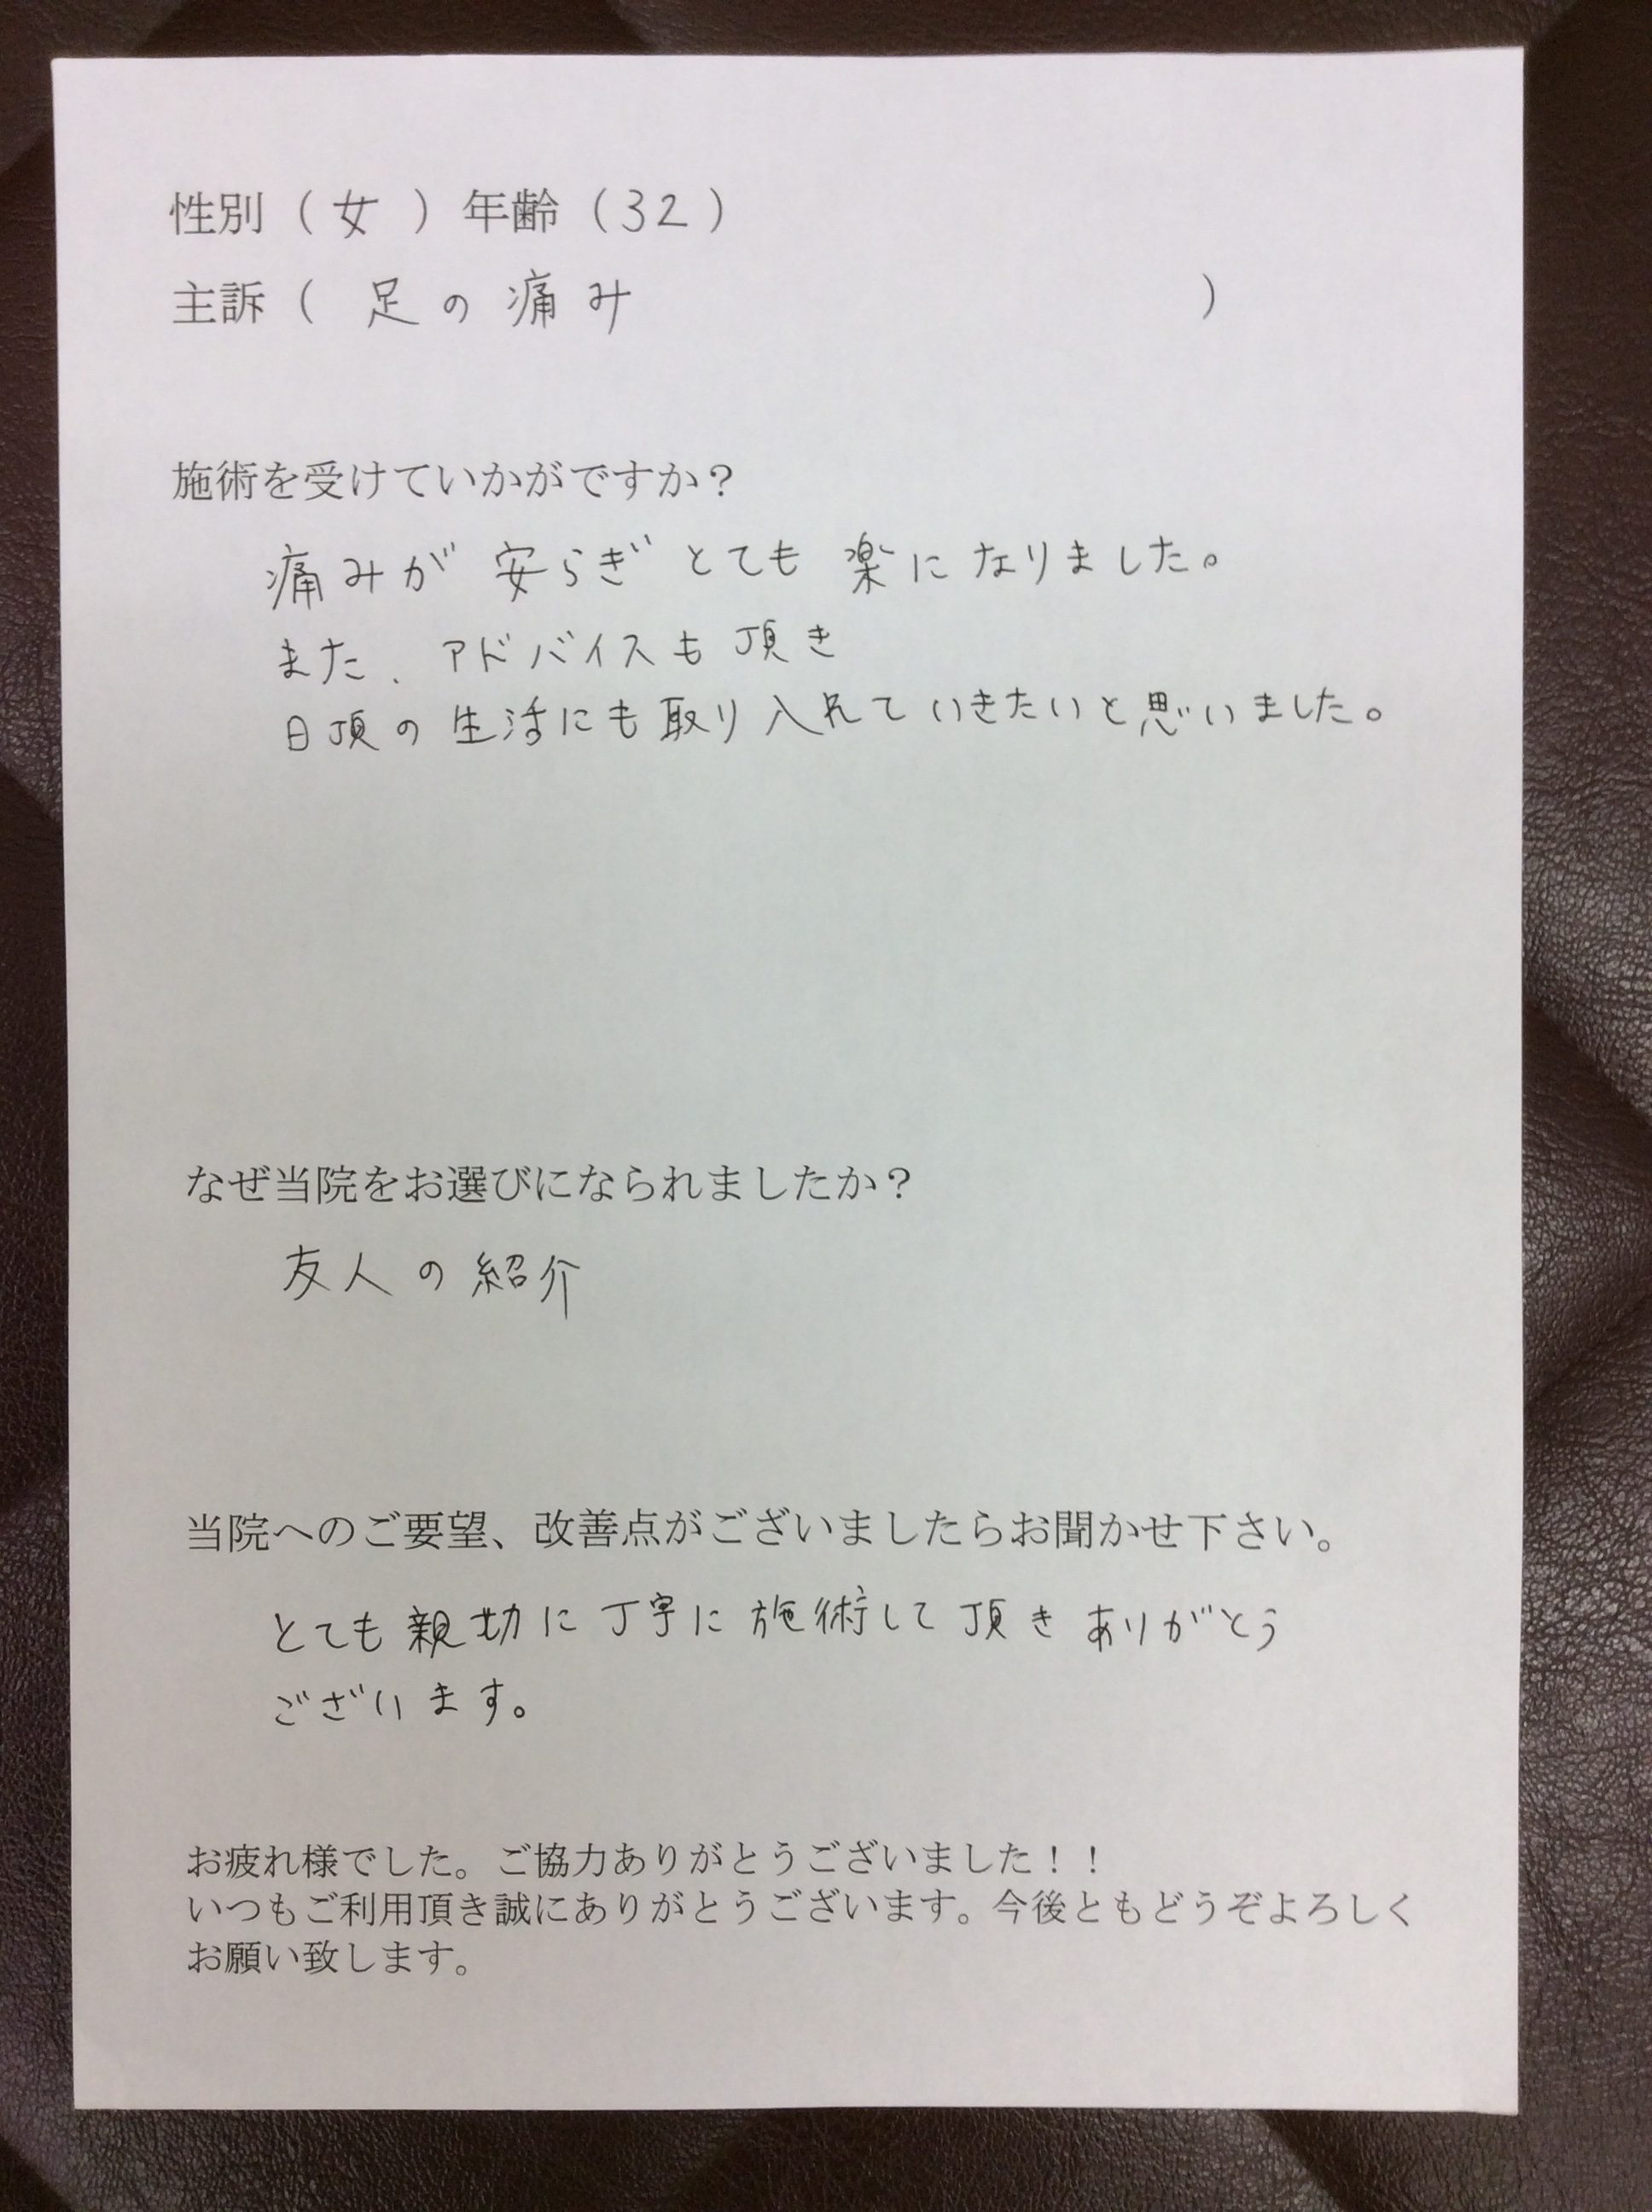 性別（女）年齢（32）
主訴（足の痛み）
施術を受けていかがですか？
痛みが安らぎとても楽になりました。
また、アドバイスも頂き
日頃の生活にも取り入れていきたいと思いました。
なぜ当院をお選びになられましたか？
友人の紹介
当院へのご要望、改善点がございましたらお聞かせ下さい。
とても親切に丁寧に施術して頂きありがとう
ございます。
お疲れ様でした。ご協力ありがとうございました！！
いつもご利用頂き誠にありがとうございます。今後ともどうぞよろしく
お願い致します。